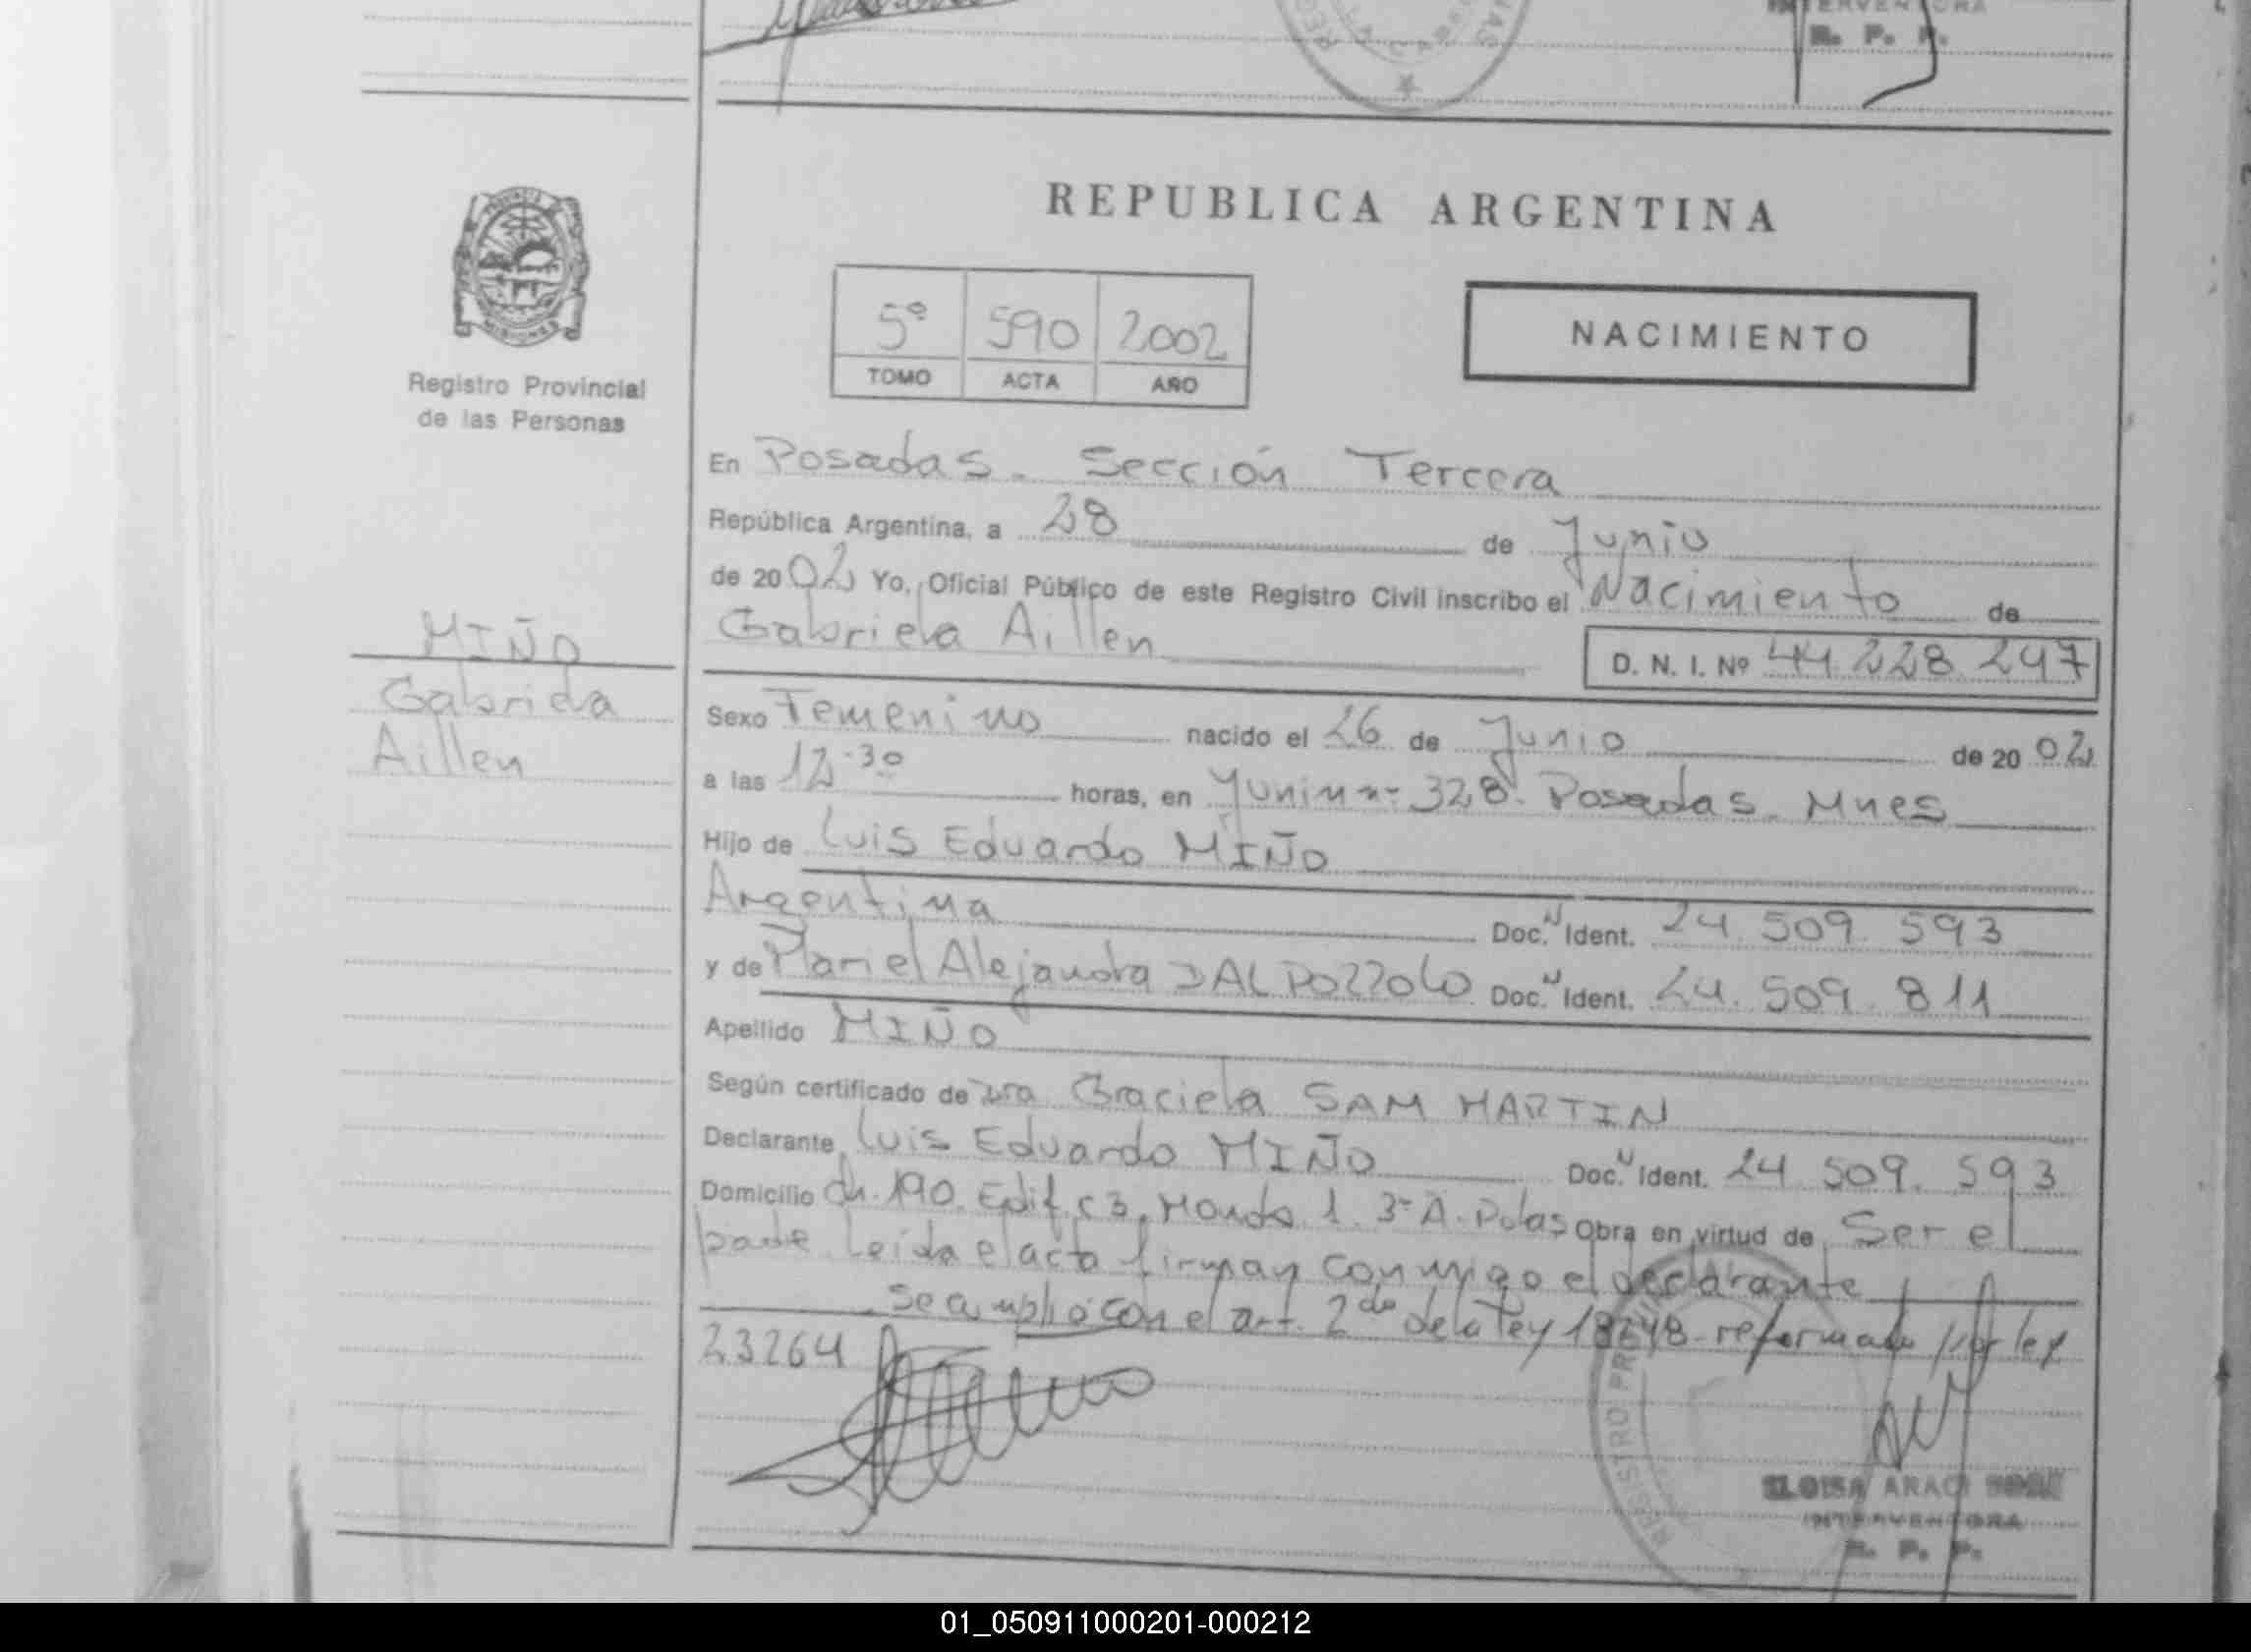 INTERVENTORA
R. P. P.
REPUBLICA ARGENTINA
5º 590 2002
TOMO ACTA AÑO
NACIMIENTO
MISIONES
Registro Provincial
de las Personas
MIÑO
Gabriela
Aillen
En Posadas - Sección Tercera
República Argentina, a 28 de Junio
de 2002 Yo, Oficial Público de este Registro Civil inscribo el Nacimiento de
Gabriela Aillen D. N. I. Nº 44.228.247
Sexo Femenino nacido el 26 de Junio de 2002
a las 12.30 horas, en Junin nº 328. Posadas. Mnes
Hijo de Luis Eduardo MIÑO
Argentina Doc. Ident. 24.509.593
y de Mariel Alejandra DAL POZZOLO Doc. Ident. 24.509.811
Apellido MIÑO
Según certificado de Dra Graciela SAM MARTIN
Declarante Luis Eduardo MIÑO Doc. Ident. 24.509.593
Domicilio Ch. 190. Edif. C3. 1. 3º A. Pdas Obra en virtud de Ser el
padre. Leída el acta firman conmigo el declarante
Se cumplió con el art. 2do de la Ley 18248 reformado por ley
23264
REGISTRO
ELOISA ARACI
INTERVENTORA
R. P. P.
01_050911000201-000212